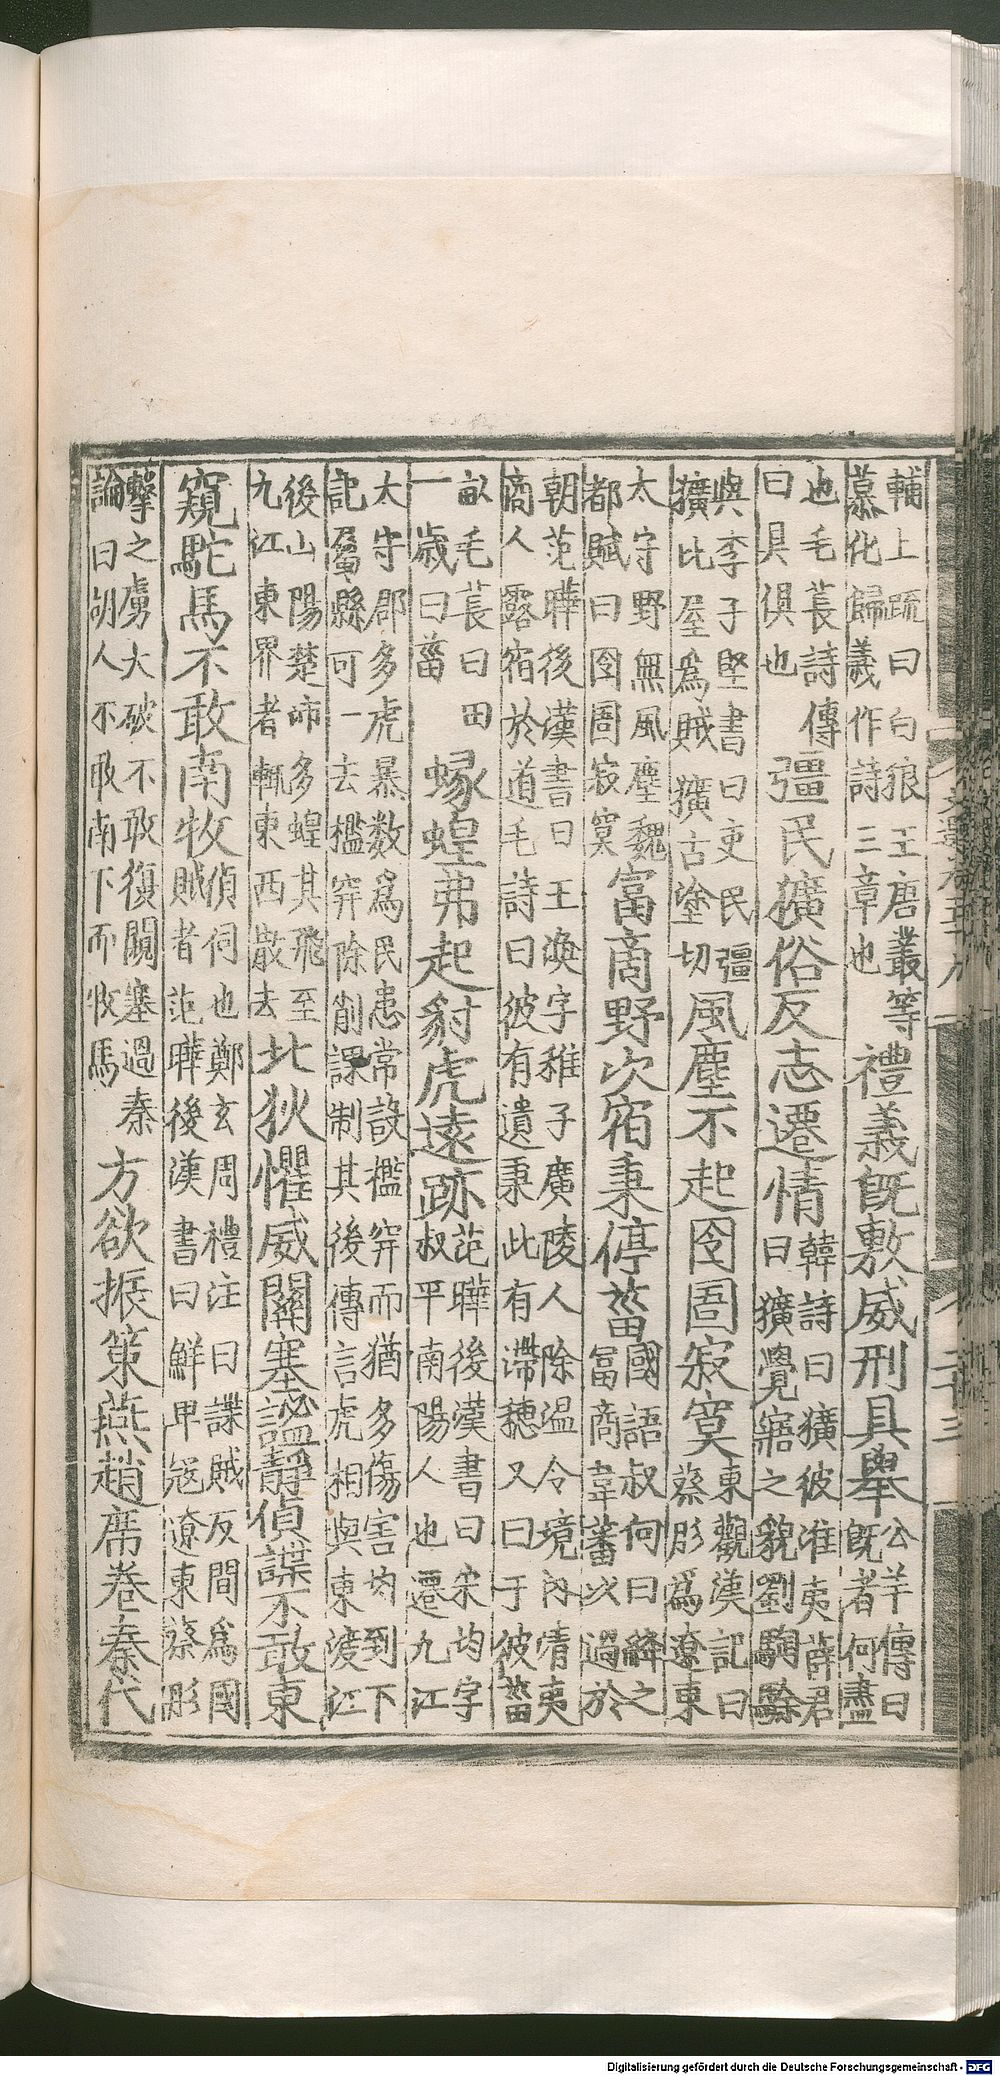 輔上疏曰白狼王唐叢等
慕化歸義作詩三章也
禮義既敷威刑具舉
公羊傳曰
既者何盡
也毛萇詩傳
曰具俱也
彊民獷俗反志遷情
韓詩曰獷彼淮夷薛君
曰獷覺寤之貌劉騊駼
與李子堅書曰吏民彊
獷比屋爲賊獷古塗切
風塵不起囹圄寂寞
東觀漢記曰
蔡彤爲遼東
太守野無風塵魏
都賦曰囹圄寂寞
富商野次宿秉停菑
國語叔向曰絳之
冨商韋藩以過於
朝范曄後漢書曰王渙字稚子廣陵人除温令境内清夷
商人露宿於道毛詩曰彼有遺秉此有滯穗又曰于彼菑
畝毛萇曰田
一歲曰菑
蝝蝗弗起豺虎遠跡
范曄後漢書曰宋均字
叔平南陽人也遷九江
太守郡多虎暴數爲民患常設檻穽而猶多傷害均到下
記屬縣可一去檻穽除削課制其後傳言虎相與東渡江
後山陽楚沛多蝗其飛至
九江東界者輒東西散去
北狄懼威關塞謐靜偵諜不敢東
窺駝馬不敢南牧
偵伺也鄭玄周禮注曰諜賊反間爲國
賊者范曄後漢書曰鮮卑寇遼東蔡彤
擊之虜大破不敢復闚塞過秦
論曰胡人不敢南下而牧馬
方欲振策燕趙席卷秦代
Digitalisierung gefördert durch die Deutsche Forschungsgemeinschaft - DFG